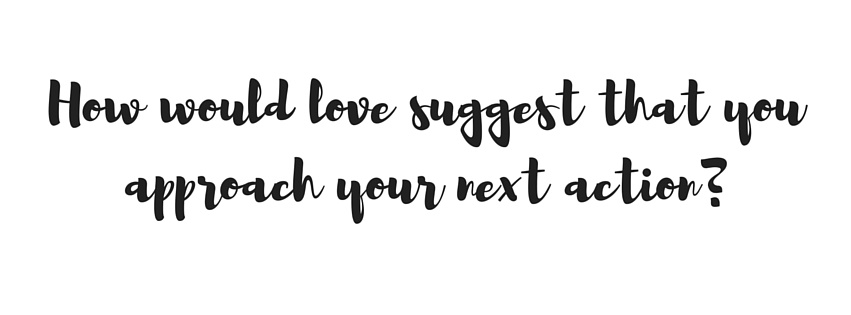 How would love suggest that you
approach your next action?